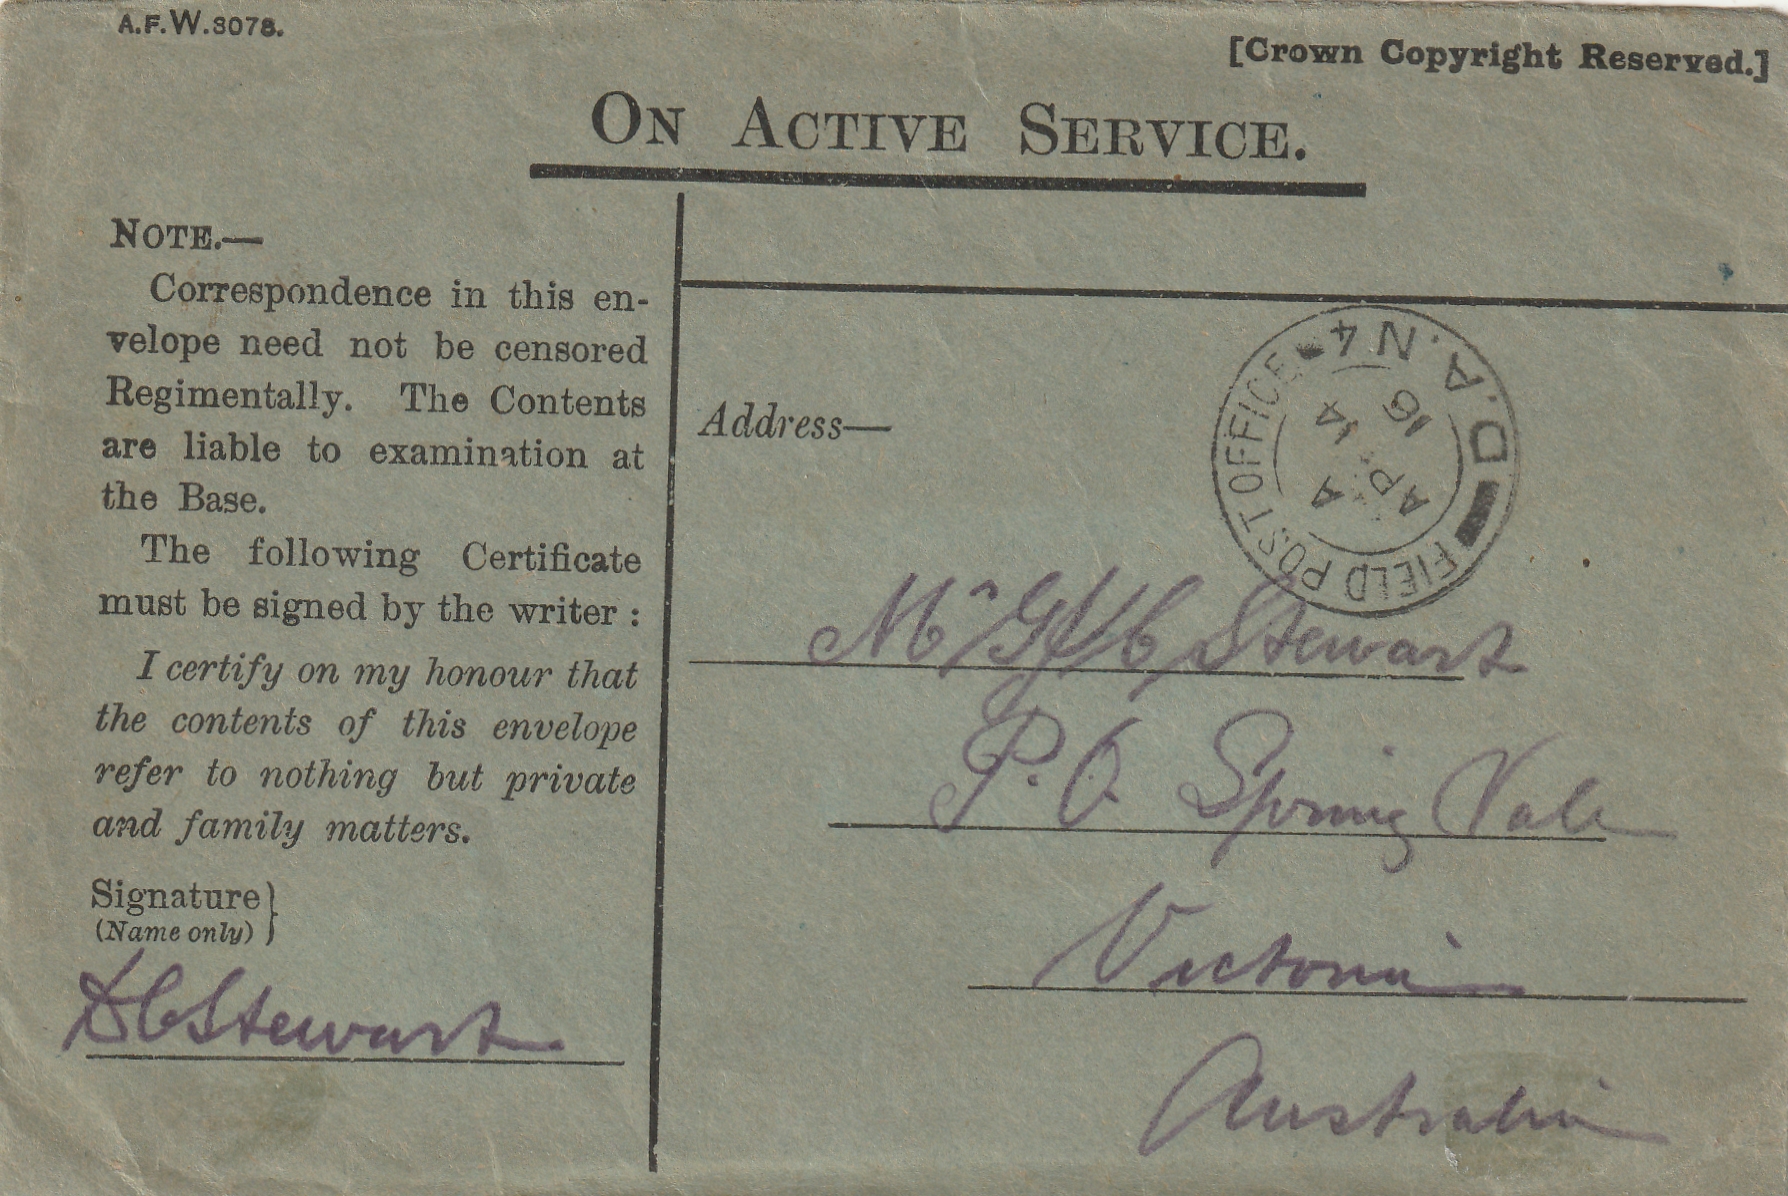 A.F.W.3078.
[Crown Copyright Reserved.]
ON ACTIVE SERVICE.
NOTE.—
Correspondence in this en-
velope need not be censored
Regimentally. The Contents
are liable to examination at
the Base.
The following Certificate
must be signed by the writer :
I certify on my honour that
the contents of this envelope
refer to nothing but private
and family matters.
Signature}
(Name only)
Stewart
Address—
FIELD POST OFFICE
D.A.N.4
A
AP 14
16
Mr Stewart
P.O. Spring Vale
Victoria
Australia